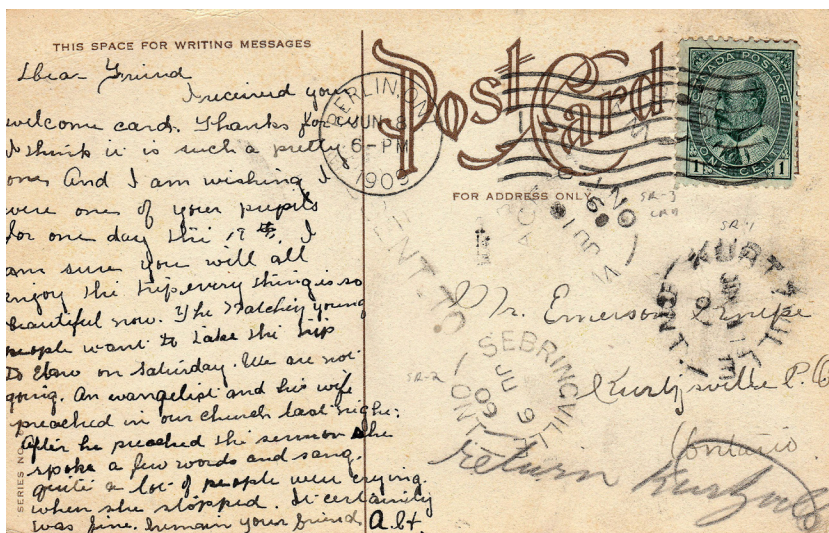 THIS SPACE FOR WRITING MESSAGES
Dear Friend
I received your
welcome card. Thanks for
I think it is such a pretty
one And I am wishing I
were one of your pupils
for one day the 19th. I
am sure you will all
enjoy the trip every thing is so
beautiful now. The young
people want to take the trip
to on Saturday. We are not
going. An evangelist and his wife
preached in our church last night:
After he preached the sermon she
spoke a few words and sang.
quite a lot of people were crying.
when she stopped. It certainly
was fine. remain your friend
SERIES NO.
Post Card
FOR ADDRESS ONLY
BERLIN, ONT
JUN 8
6-PM
1909
CANADA POSTAGE
1 ONE CENT 1
SR-3
SR-1
SENT-TO
Mr. Emerson
SEBRINGVILLE
JU 9
09
ONT
SR-2
Kurtzville P.O
Ontario
return Kurtzville